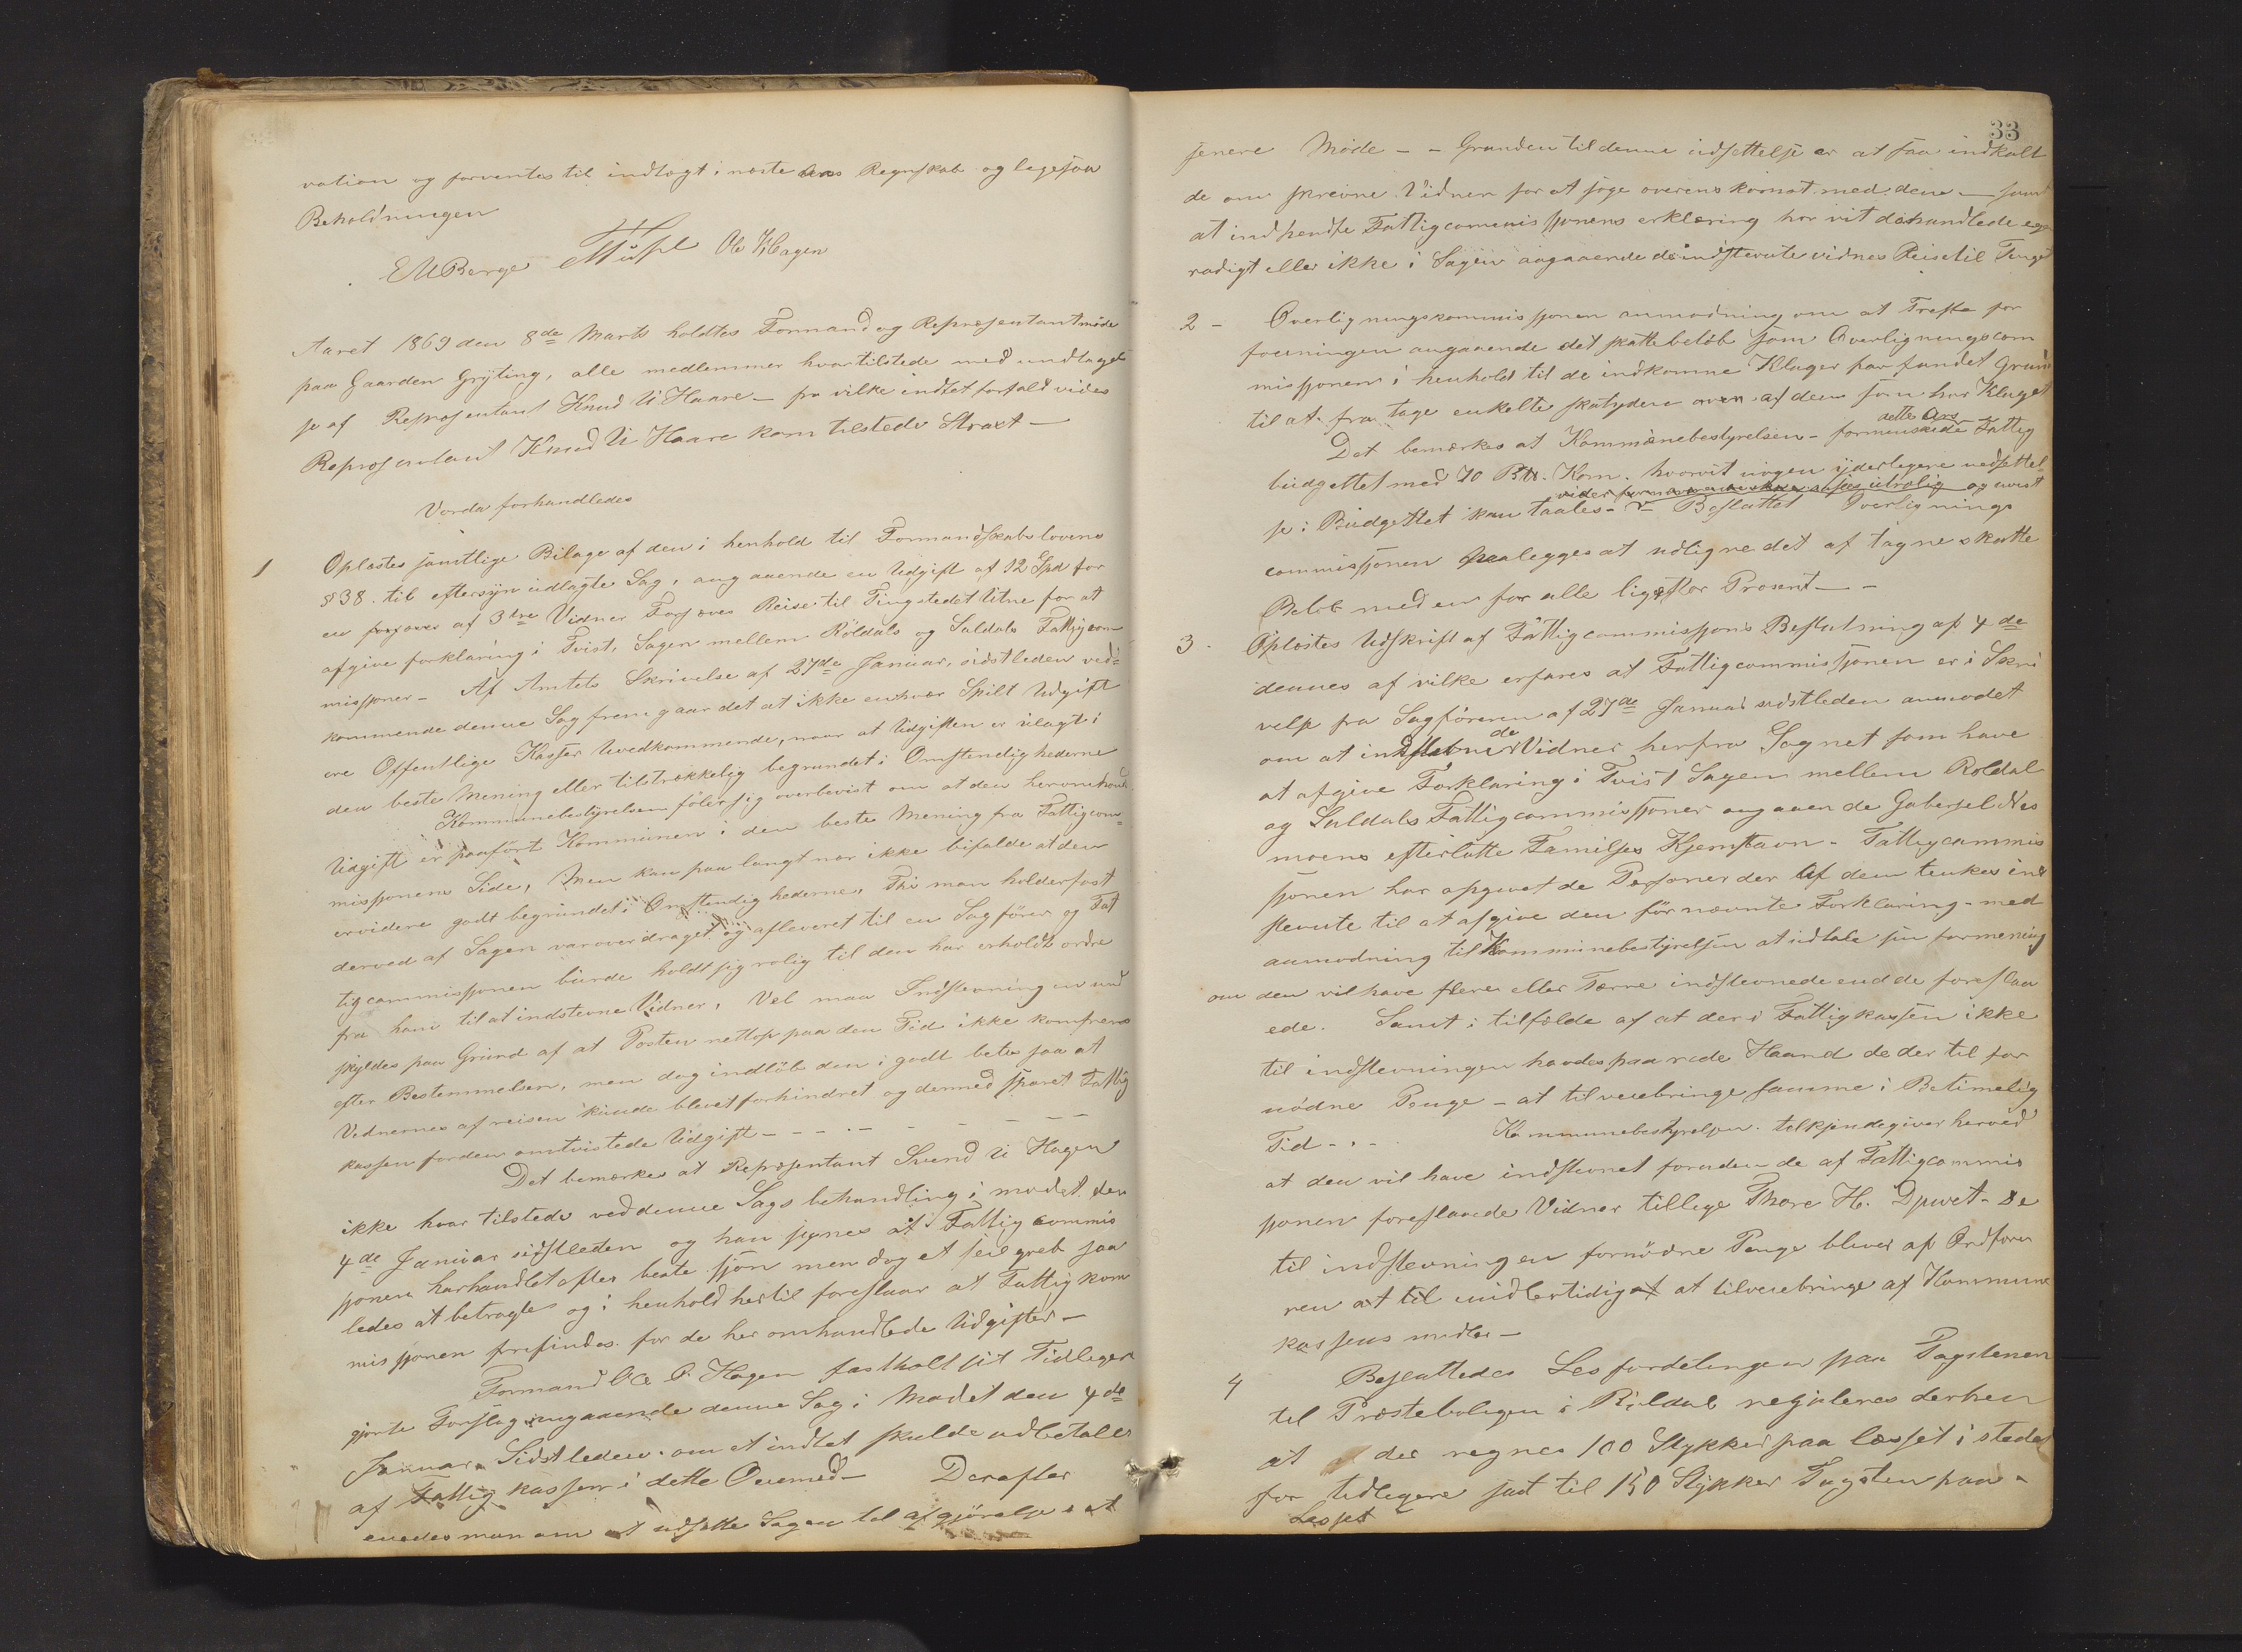 vation og forventes til indtagt i næste Aars Regnskab og lagesaa
Beholdningen
E M Berge Ole K Hagen
Aaret 1869 den 8de Marts holdtes Formand og Repræsentantmøde
paa Gaarden Gryting, alle medlemmer hvar tilstede med undtagel
se af Repræsentant Knud U Haare – fra vilke indtet forfald vides
Repræsentant Knud U Haare kom tilstede Strax –
Vorda forhandledes
1 Oplæstes samtlige Bilage af den i henhold til Formandskabslovens
§ 38. til eftersyn udlagte Sag, angaaende en Udgift af 12 Spd for
en forsøves af 3de Vidner Forsøves Reise til Tingstedet Utne for at
afgive forklaring i Tvist, Sagen mellem Røldals og Suldals Fattigcom
missjoner – Af Amtets Skrivelse af 27de Januar, sidstleden ved-
kommende denne Sag fremgaar det at ikke enhver Spilt Udgift
ere Offentlige Kasser Uvedkommende, naar at Udgiften er ilagt i
den beste Mening eller tilstrækkelig begrundet i Omstendighederne
Kommunebestyrelsen føler sig overbevist om at den hervomhand
Udgift er paaført Kommunen i den beste Mening fra Fattigcom-
missjonens Side, Men kan paa langt nær ikke bifalde at den
ervidere godt begrundet i Omstendighederne, Thi man holder fast
derved af Sagen var overdraget og afleveret til en Sagfører og Fat
tigcommissjonen burde holdt sig rolig til den har erholdt ordre
fra ham til at indstevne Vidner, Vel maa Indstevningen und
skyldes paa Grund af at Posten netop paa den Tid ikke komfrem
efter Bestemmelsen, men dog indløb den i godt betes saa at
Vidnernes afreisen kunde blevet forhindret og dermed sparet Fattig
kassen forden omtvistede Udgift – – – – – – – –
Det bemærkes at Repræsentant Svend U Hagen
ikke hvar tilstede ved denne Sags behandling i mødet den
4de Januar sidstleden og han synes at Fattigcommis
sjonen harhandlet efter beste sjøn men dog et feilgreb saa
ledes at betragte og i henhold hertil foreslaar at Fattigkom
missjonen frifindes for de her omhandlede Udgifter –
Formand Ole O. Hagen fastholt sit Tidligere
gjorte Forslag angaaende denne Sag i Mødet den 4de
Januar Sidstleden om at indtet skulde udbetales
af Fattigkassen i dette Øiemed – Derefter
enedes man om at udsette Sagen til afgjørelse i et
33
senere Møde – – Grunden til denne udsettelse er at faa indkalt
de om skrevne Vidner for at søge overenskomst med dem – samt
at indhendte Fattigcommissjonens erklæring hor vit dehandlede egen
radigt eller ikke i Sagen angaaende de indstevnte vidnes Reise til Tinget
2 – Overligningskommissjonen anmodning om at Treffe for
foeningen angaaende det skattebeløb som Overligningscom
missjonen i henhold til de indkomne Klager har fundet Grund
til at fra tage enkelte skatydere af dem som har Klaget
Det bemærkes at Kommunebestyrelsen – formindskede dette Ars Fattig
budgettet med 70 Btr. Korn. hvorvit nogen yderlegere nedsettel-
se i Budgettet kan taales – er utrolig og uvist Besluttet Overlignings
commissjonen paalegges at udligne det af tagne skatte
Beløb med en for alle ligestor Prosent – –
3. Oplæstes Udskrift af Fattigcommissjons Beslutning af 4de
dennes af vilke erfares at Fattigcommissjonen er i Skri
velse fra Sagføreren af 27de Januar sidstleden anmodet
om at indstevne de Vidner herfra Sognet som have
at afgive Forklaring i Tvist Sagen mellem Røldal
og Suldals Fattigcommissjoner angaaende Gabersel Nes
moens efterlatte Familjes Hjemstavn – Fattigcommis
sjonen har opgivet de Personer der Af dem tenkes ind
stevnte til at afgive den før nævnte Forklaring – med
anmodning til Kommunebestyrelsen at udtale sin formening
om den vil have flere eller Færre indstevnede end de foreslaa
ede. Samt i tilfælde af at der i Fattigkassen ikke
til indstevningen havdes paa rede Haand de der til for
nødne Penge – at tilveiebringe samme i Betimelig
Tid – . – Kommunebestyrelsen tilkjendegiver herved
at den vil have indstevnet foruden de af Fattigcommis
sjonen foreslaaede Vidner tillige Thore H. – De
til indstevningen fornødne Penge bliver af Ordføre
ren at til midlertidig at tilveiebringe af Kommune
kassens midler –
4 Besluttedes Lesfordelingen paa Tagstenen
til Præsteboligen i Røldal reguleres derhen
at der regnes 100 Stykker paa læsset i stedet
for tidligere sat til 150 Stykker Tagsten paa –
Lesset